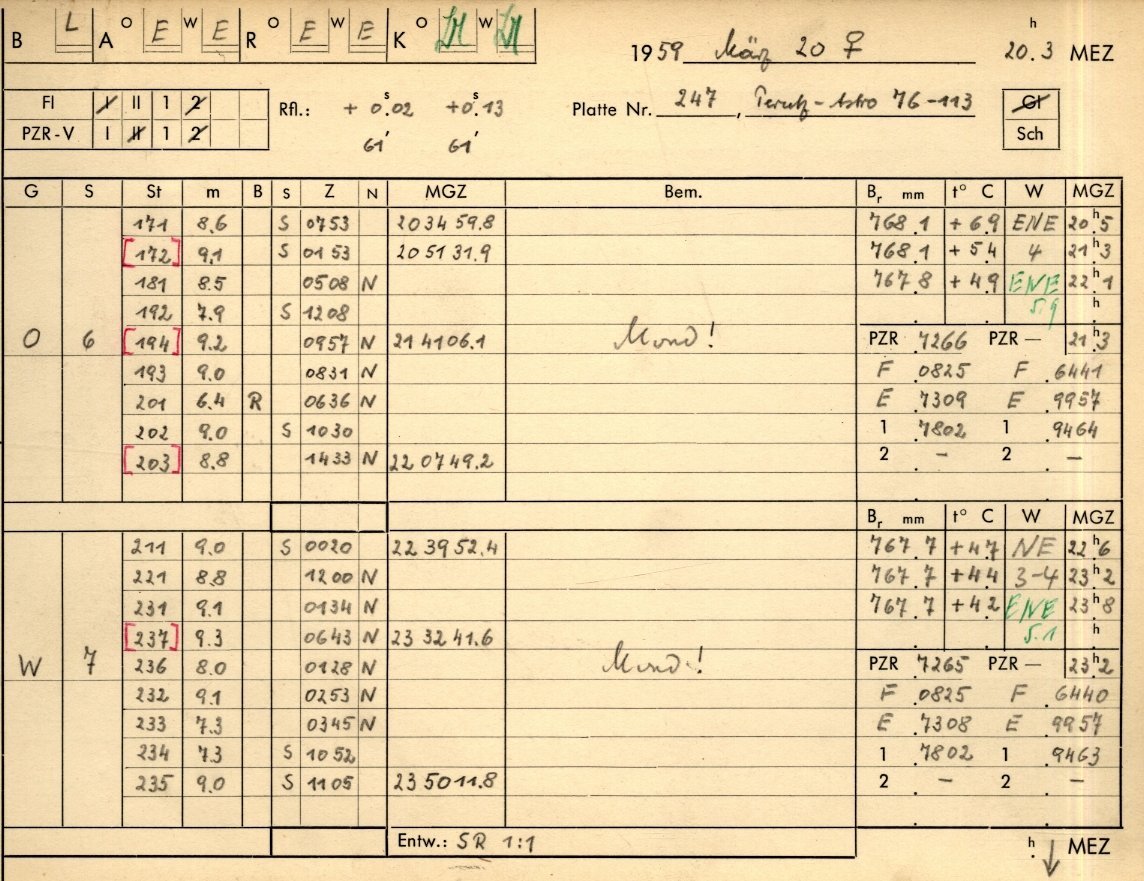 B L A O E W E R O E W E K O W h
1959 März 20 ♀ 20.3 MEZ
Fl I II 1 2 Rfl.: + 0ˢ.02 +0ˢ.13 Platte Nr. 247, Perutz-Astro 76-113 Gl
PZR-V I II 1 2 61' 61' Sch
G S St m B S Z N MGZ Bem. Bᵣ mm t° C W MGZ
171 8.6 S 0753 20 34 59.8 768.1 +6.9 ENE 20ʰ5
[172] 9.1 S 0153 20 51 31.9 768.1 +5.4 4 21ʰ3
181 8.5 0508 N 767.8 +4.9 ENE 22ʰ1
192 7.9 S 1208 5.9 h
O 6 [194] 9.2 0957 N 21 41 06.1 Mond! PZR .7266 PZR — 21ʰ3
193 9.0 0831 N F .0825 F .6441
201 6.4 R 0636 N E .7309 E .9957
202 9.0 S 1030 1 .7802 1 .9464
[203] 8.8 1433 N 22 07 49.2 2 . – 2 . –
Bᵣ mm t° C W MGZ
211 9.0 S 0020 22 39 52.4 767.7 +4.7 NE 22ʰ6
221 8.8 1200 N 767.7 +4.4 3-4 23ʰ2
231 9.1 0134 N 767.7 +4.2 ENE 23ʰ8
[237] 9.3 0643 N 23 32 41.6 5.1 h
W 7 236 8.0 0128 N Mond! PZR .7265 PZR — 23ʰ2
232 9.1 0253 N F .0825 F .6440
233 7.3 0345 N E .7308 E .9957
234 7.3 S 1052 1 .7802 1 .9463
235 9.0 S 1105 23 50 11.8 2 . – 2 . –
Entw.: SR 1:1 h ↓ MEZ